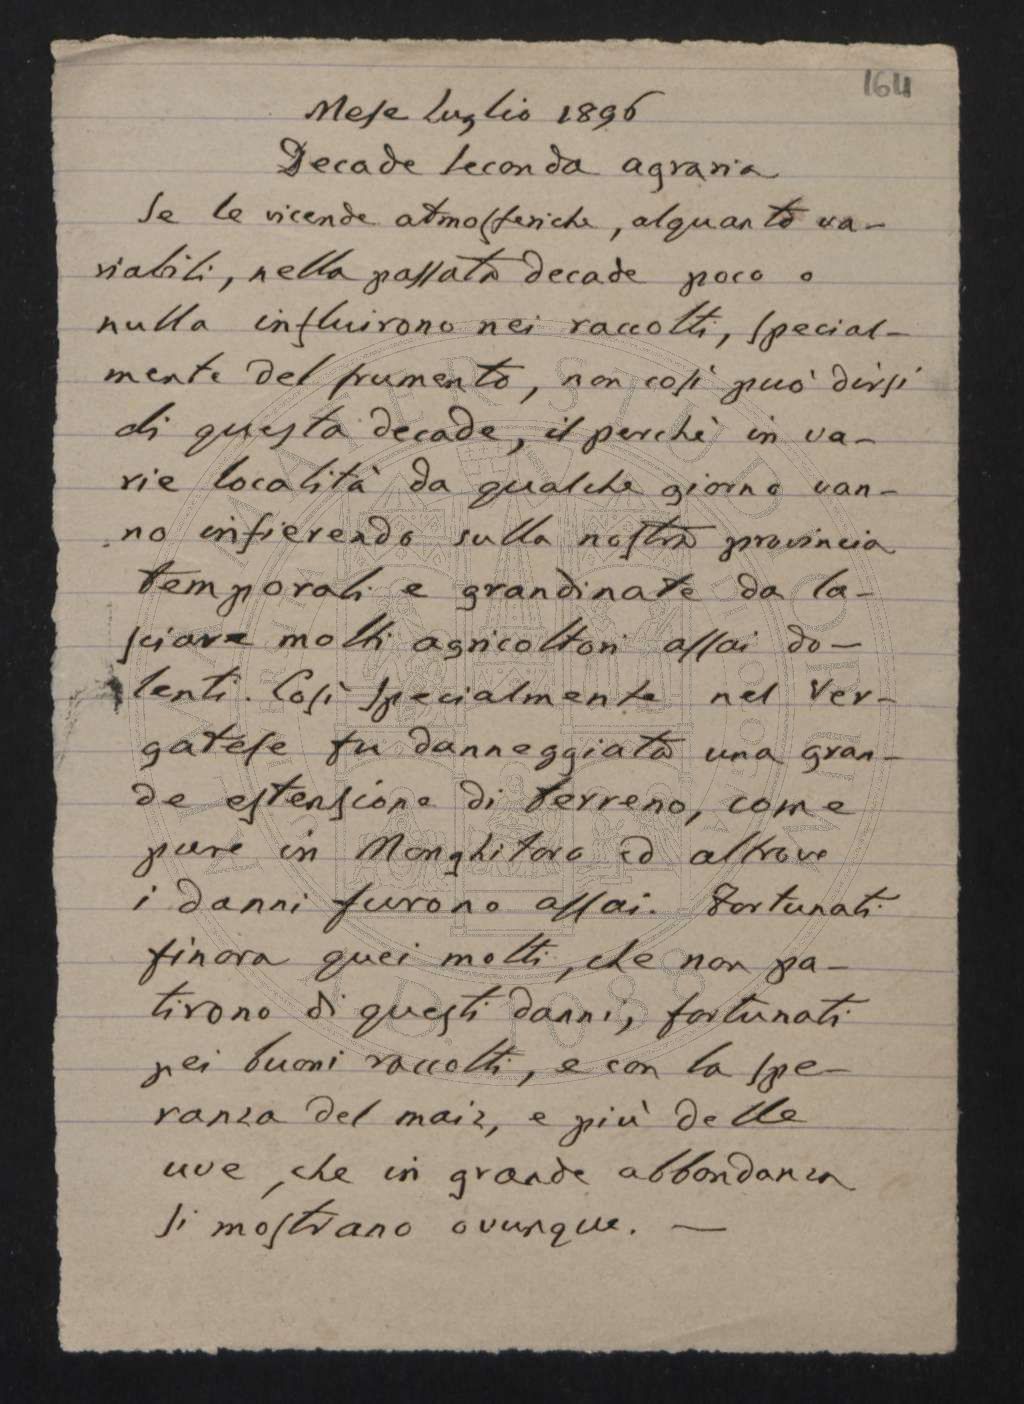 164
Mese luglio 1896
Decade seconda agraria
Se le vicende atmosferiche, alquanto va-
riabili, nella passata decade poco o
nulla influirono nei raccolti, special-
mente del frumento, non così può dirsi
di questa decade, il perchè in va-
rie località da qualche giorno van-
no infierendo sulla nostra provincia
temporali e grandinate da la-
sciare molti agricoltori assai do-
lenti. Così specialmente nel Ver-
gatese fu danneggiata una gran-
de estensione di terreno, come
pure in Monghitoro ed altrove
i danni furono assai. Fortunati
finora quei molti, che non pa-
tirono di questi danni, fortunati
pei buoni raccolti, e con la spe-
ranza del maiz, e più delle
uve, che in grande abbondanza
si mostrano ovunque. —
ALMA MATER STUDIORUM
A.D. 1088